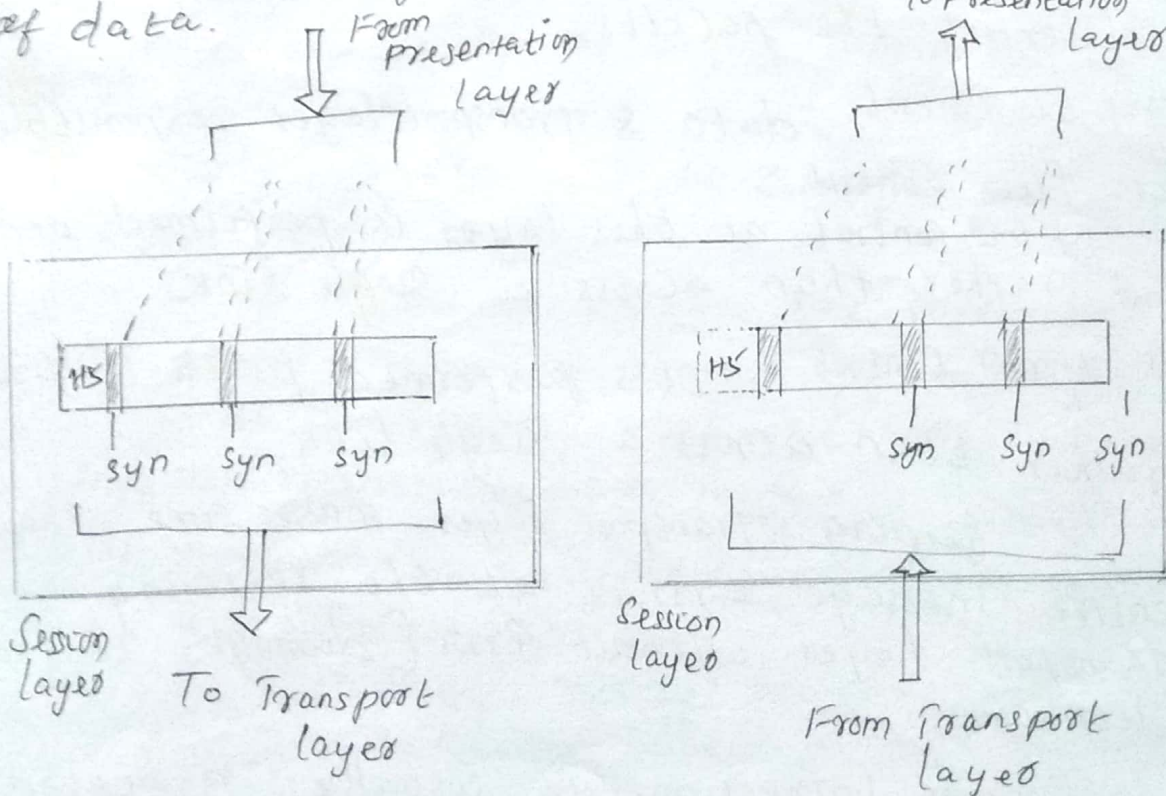 of data.
From
presentation
layer
To Presentation
layer
H5
syn
syn
syn
Session
layer
To Transport
layer
H5
syn
syn
syn
Session
layer
From Transport
layer